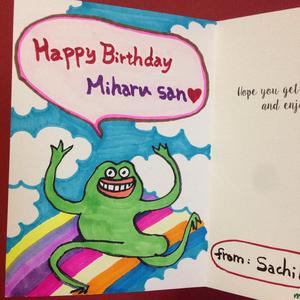 Happy Birthday
Miharu san♥
Hope you get
and enj
from: Sachi